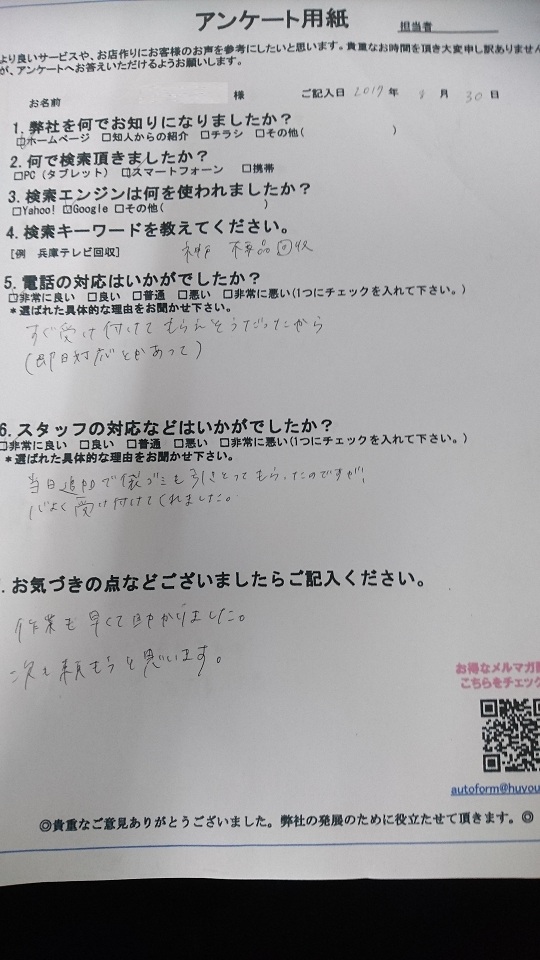 アンケート用紙
担当者
より良いサービスや、お店作りにお客様のお声を参考にしたいと思います。貴重なお時間を頂き大変申し訳ありません
が、アンケートへお答えいただけるようお願いします。
お名前 様 ご記入日 2019 年 月 30 日
1. 弊社を何でお知りになりましたか?
☑ホームページ □知人からの紹介 □チラシ □その他( )
2. 何で検索頂きましたか?
□PC(タブレット) ☑スマートフォーン □携帯
3. 検索エンジンは何を使われましたか?
□Yahoo! ☑Google □その他( )
4. 検索キーワードを教えてください。
[例 兵庫テレビ回収] 神戸 不用品回収
5. 電話の対応はいかがでしたか?
☑非常に良い □良い □普通 □悪い □非常に悪い(1つにチェックを入れて下さい。)
*選ばれた具体的な理由をお聞かせ下さい。
すぐ受け付けてもらえそうだったから
(即日対応とかあって)
6. スタッフの対応などはいかがでしたか?
□非常に良い □良い □普通 □悪い □非常に悪い(1つにチェックを入れて下さい。)
*選ばれた具体的な理由をお聞かせ下さい。
当日追加で ゴミも引きとってもらったのですが、
心よく受け付けてくれました。
. お気づきの点などございましたらご記入ください。
作業も早くて助かりました。
次も頼もうと思います。
お得なメルマガ
こちらをチェック
autoform@huyou
◎貴重なご意見ありがとうございました。弊社の発展のために役立たせて頂きます。◎